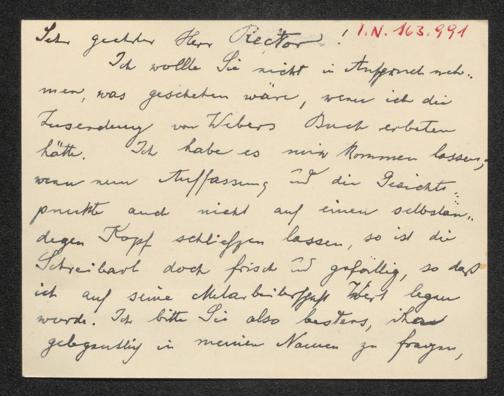 Sehr geehrter Herr Rector! I.N. 163.991
Ich wollte Sie nicht in Anspruch neh-
men, was geschehen wäre, wenn ich die
Zusendung von Webers Buch erbeten
hätte. Ich habe es mir kommen lassen,
wenn nun Auffassung und die Gesichts-
punkte auch nicht auf einen selbstän-
digen Kopf schließen lassen, so ist die
Schreibart doch frisch und gefällig, so daß
ich auf seine Mitarbeiterschaft Wert legen
würde. Ich bitte Sie also bestens, ihn
gelegentlich in meinem Namen zu fragen,